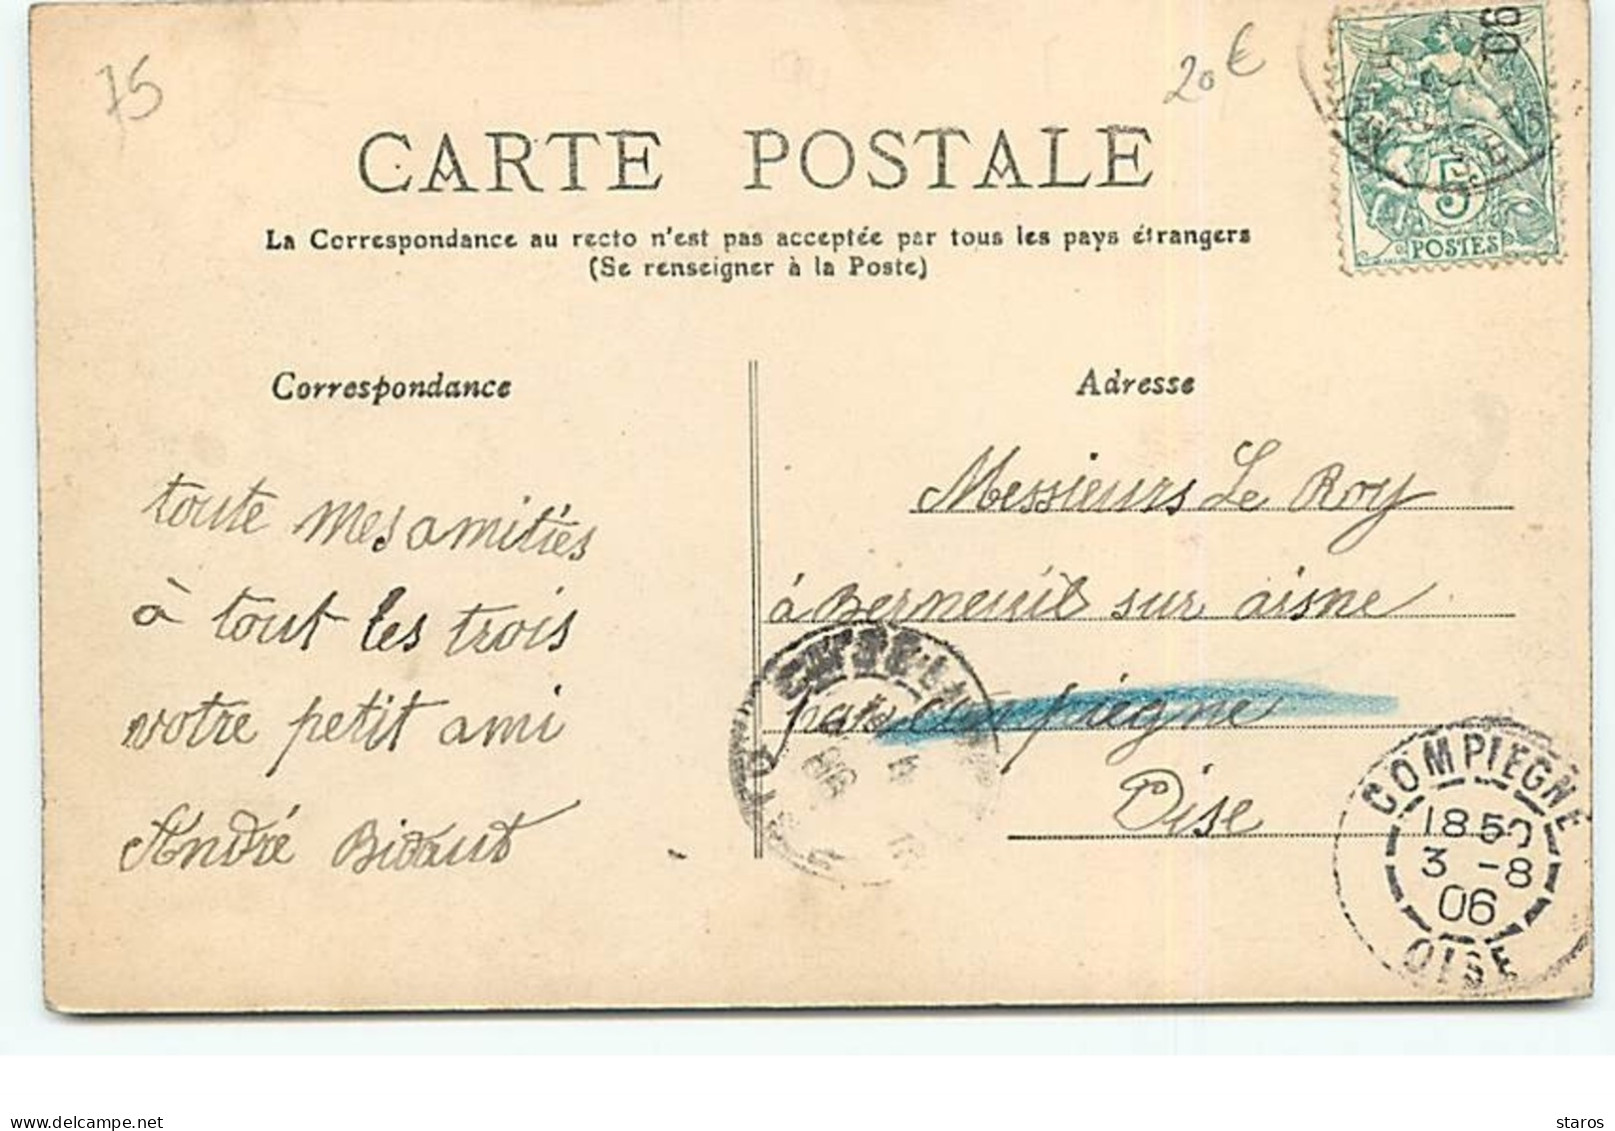 75
20 €
CARTE POSTALE
La Correspondance au recto n'est pas acceptée par tous les pays étrangers
(Se renseigner à la Poste)
06
5
POSTES
Correspondance
toute mes amitiés
à tout les trois
votre petit ami
André Bidaut
Adresse
Messieurs Le Roy
à Berneuil sur aisne
par compiègne
Oise
COMPIEGNE
1850
3 -8
06
OISE
www.delcampe.net
staros